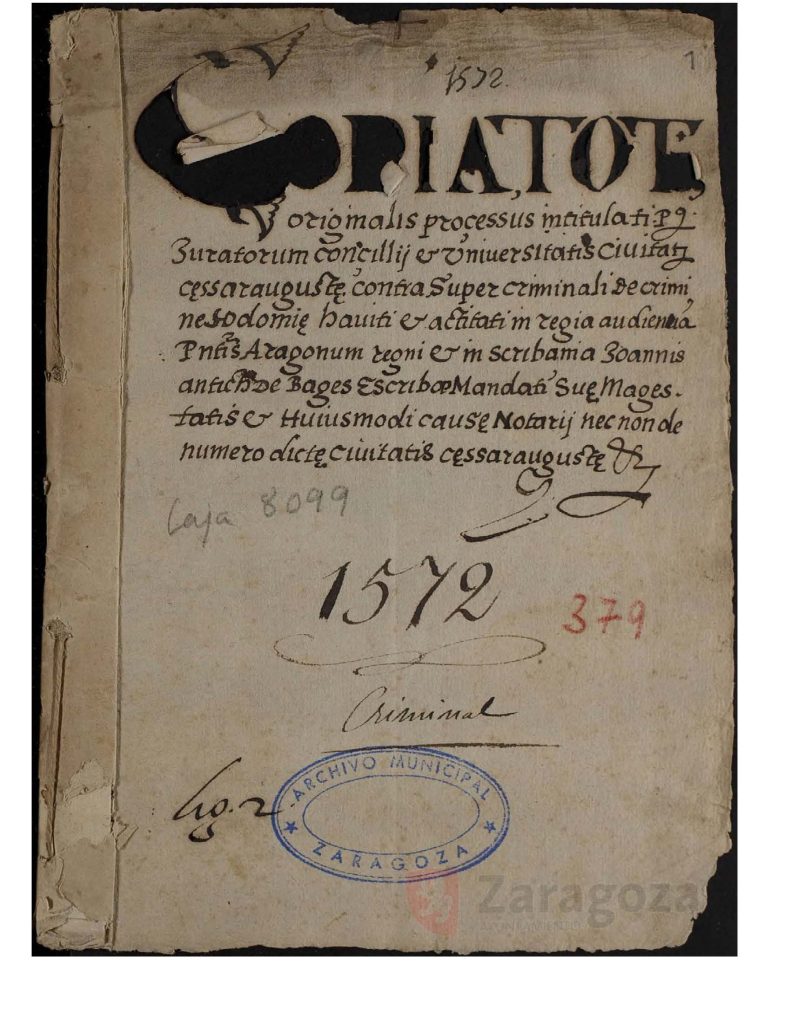 1
1572.
COPIA, TOTE,
originalis processus intitulati P q̃
Juratorum concillij & Vniuersitatis Ciuitatꝭ
cęssaraugustę. contra Super criminali De crimi
ne Sodomię hauiti & actitati in regia audientia
Pntis Aragonum regni & in scribania Joannis
antich De Bages Escribæ Mandati Suę Mages-
tatis & Huiusmodi causę Notarij nec non de
numero dictę ciuitatis cęssaraugustę &
Caja 8099
1572
379
Criminal
lig. 2
ARCHIVO MUNICIPAL
ZARAGOZA
Zaragoza
AYUNTAMIENTO